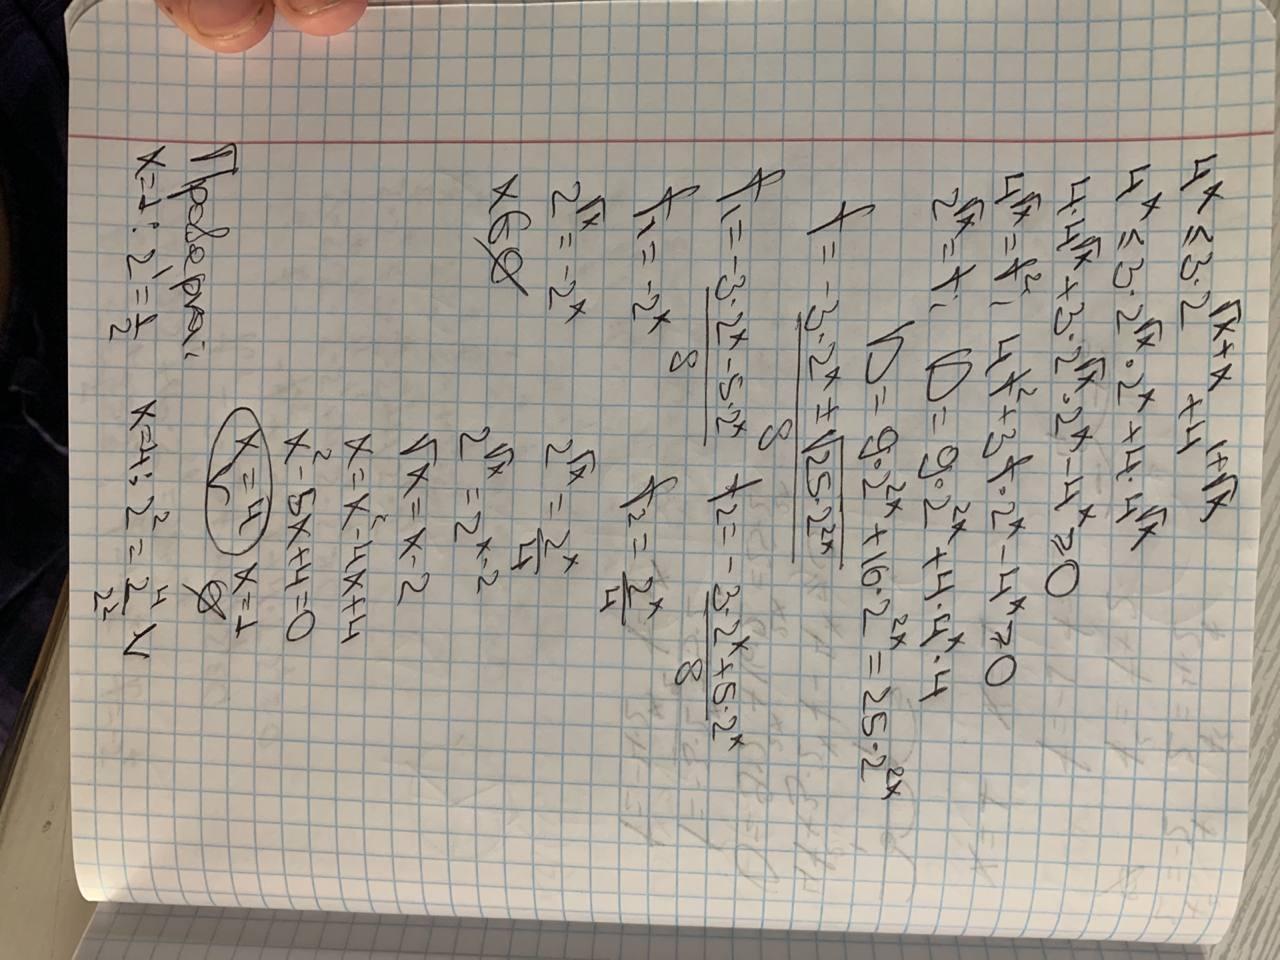 4^x ≤ 3·2^(√x+x) + 4^(1+√x)
4^x ≤ 3·2^√x · 2^x + 4·4^√x
4·4^√x + 3·2^√x · 2^x - 4^x ≥ 0
4^√x = t²; 4t² + 3t·2^x - 4^x ≥ 0
2^√x = t; D = 9·2^(2x) + 4·4^x·4
√D = 9·2^(2x) + 16·2^(2x) = 25·2^(2x)
t = (-3·2^x ± √(25·2^(2x)))/8
t₁ = (-3·2^x - 5·2^x)/8 t₂ = (-3·2^x + 5·2^x)/8
t₁ = -2^x t₂ = 2^x/4
2^√x = -2^x 2^√x = 2^x/4
x ∈ ∅ 2^√x = 2^(x-2)
√x = x-2
x = x² - 4x + 4
x² - 5x + 4 = 0
x = 4 x = 1
∅
Проверка:
x=1: 2^1 = 1/2 x=4: 2² = 2^4/2² √